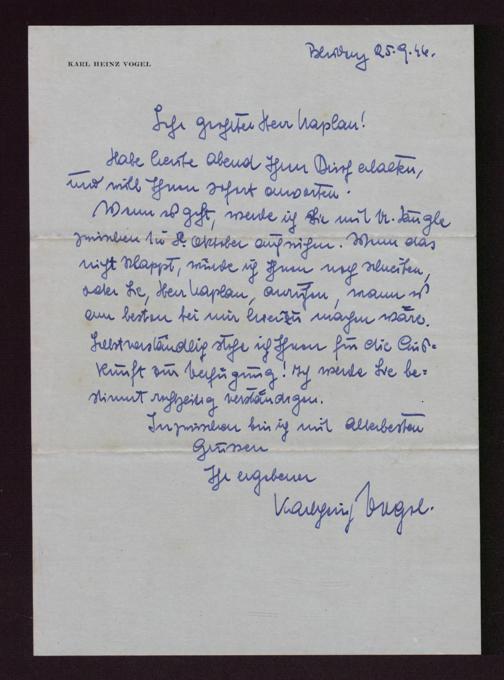 KARL HEINZ VOGEL
25.9.46.
Sehr geehrter Herr Kaplan!
Habe heute Abend Ihren Brief erhalten,
und will Ihnen sofort antworten.
Wenn es geht, werde ich Sie mit Dr.
zwischen 1. u 8. Oktober aufsuchen. Wenn das
nicht klappt, würde ich Ihnen noch schreiben,
oder Sie, Herr Kaplan, anrufen, wann es
am besten bei mir zu machen wäre.
Selbstverständlich stehe ich Ihnen für die Aus-
kunft zur Verfügung! Ich werde Sie be-
stimmt rechtzeitig verständigen.
Inzwischen bin ich mit allerbesten
Grüssen
Ihr ergebener
Karlheinz Vogel.